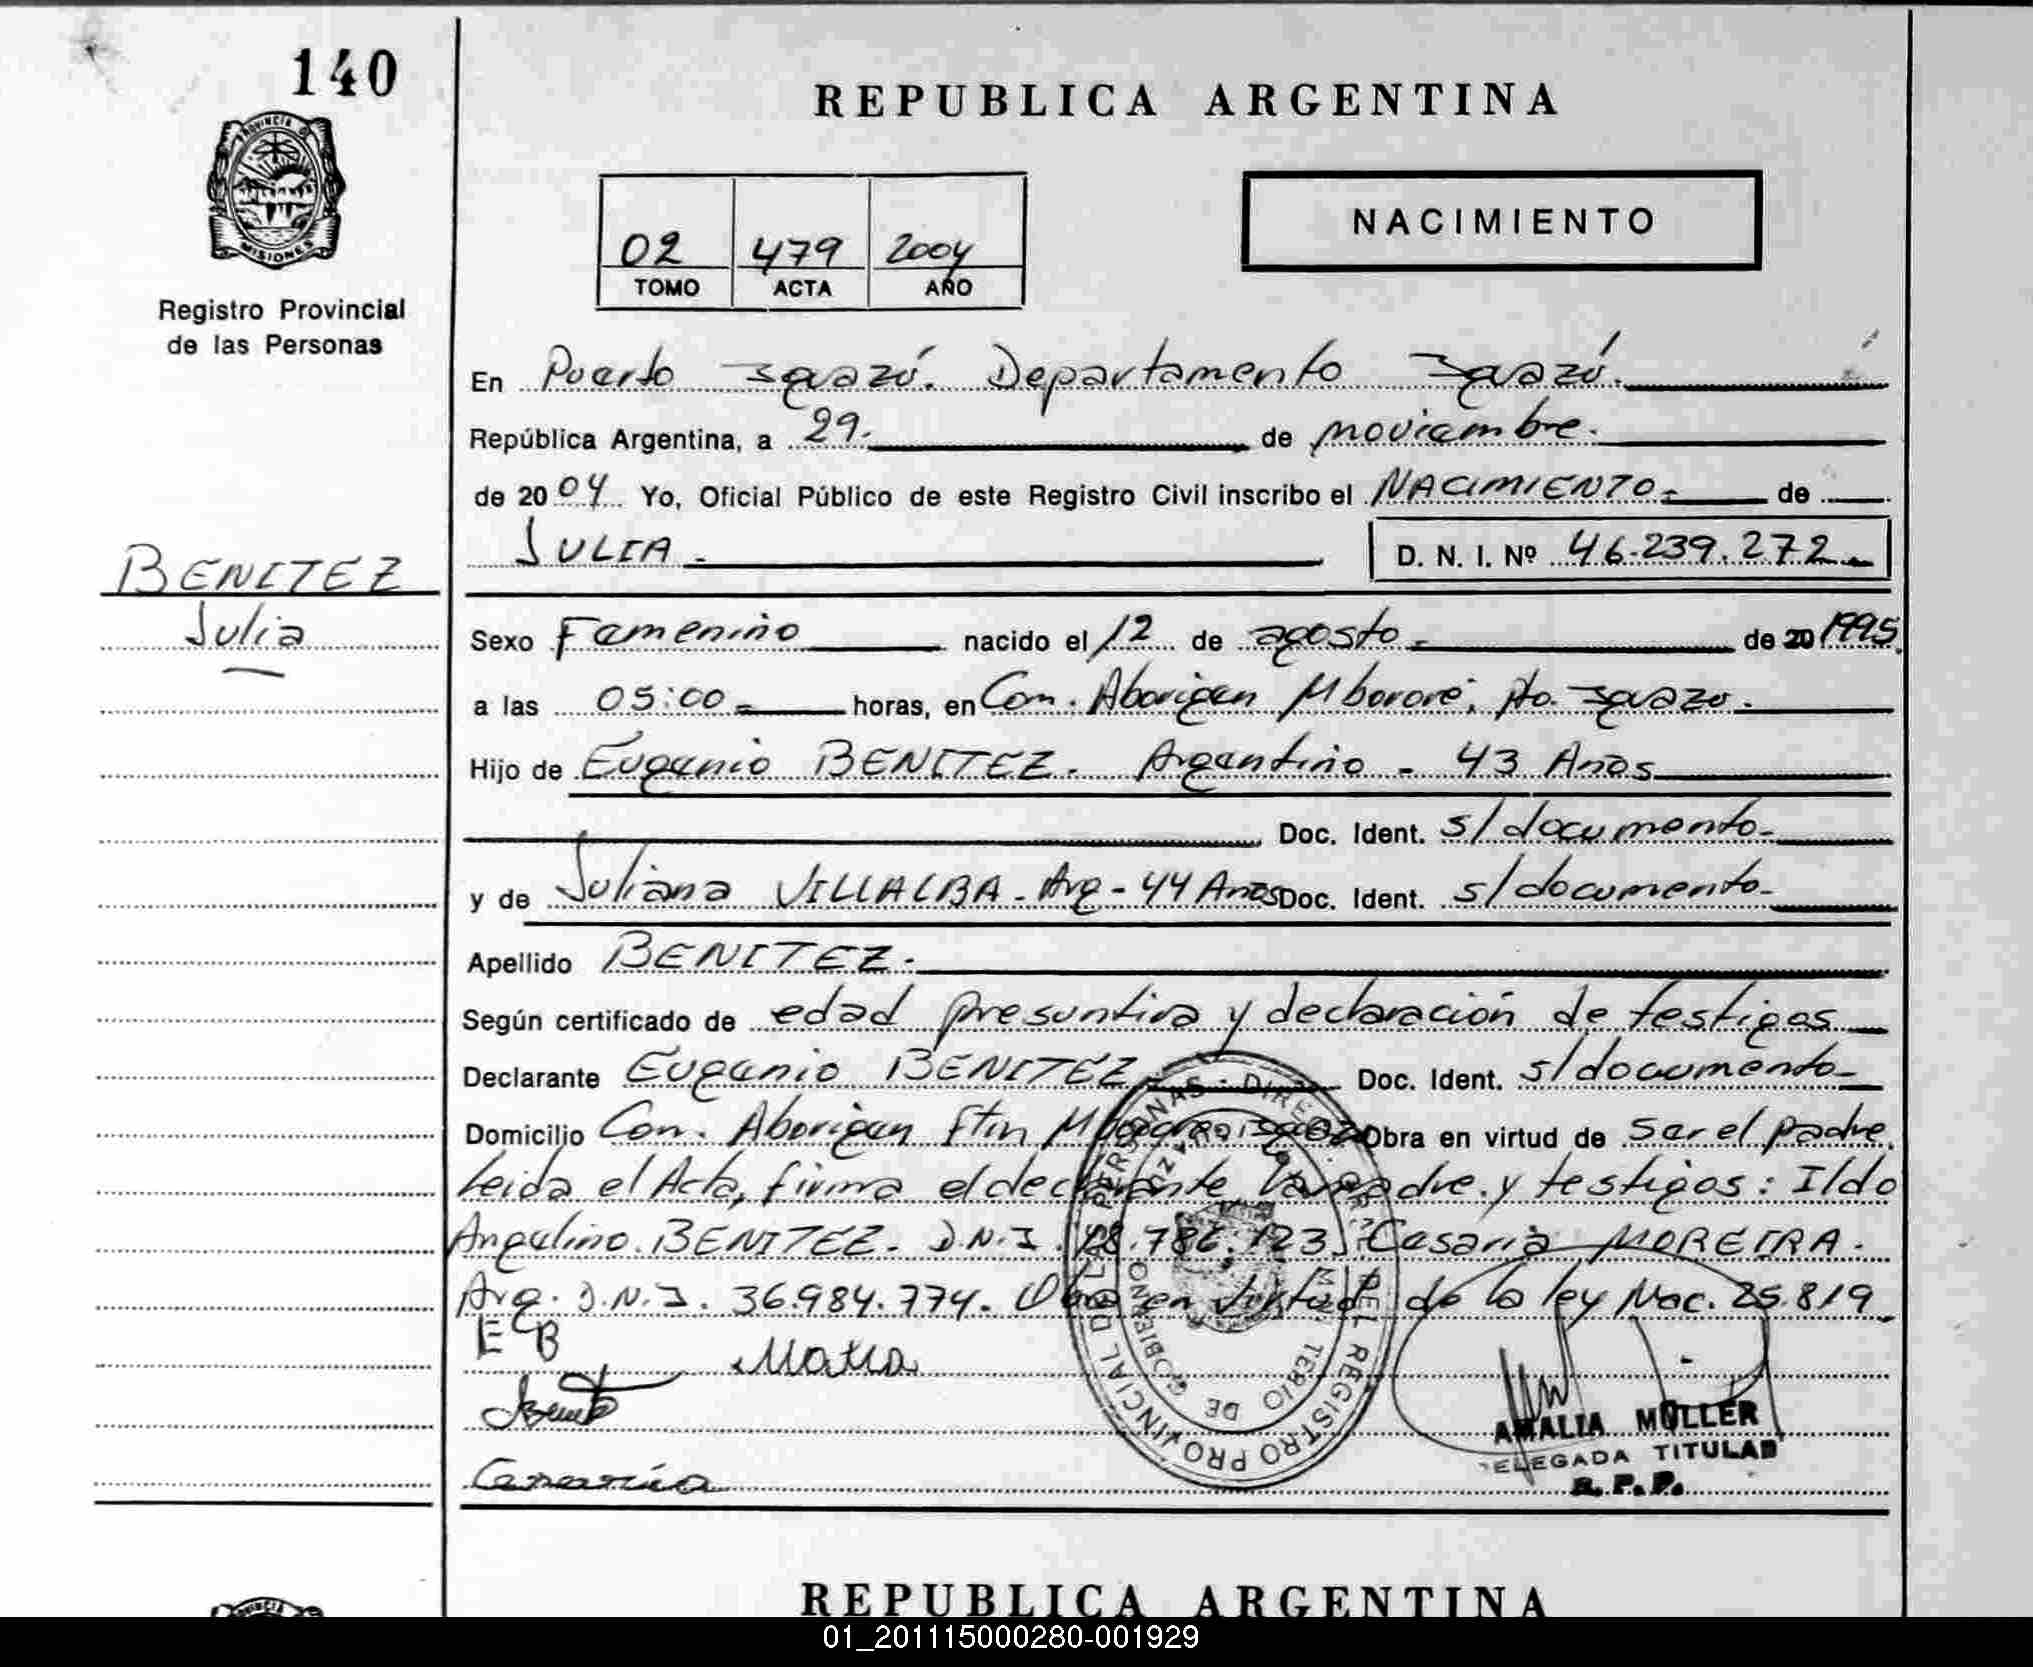 140
PROVINCIA DE
MISIONES
Registro Provincial
de las Personas
BENITEZ
Julia
REPUBLICA ARGENTINA
02 479 2004
TOMO ACTA AÑO
NACIMIENTO
En Puerto Iguazú. Departamento Iguazú.
República Argentina, a 29. de noviembre.
de 2004 Yo, Oficial Público de este Registro Civil inscribo el NACIMIENTO - de
JULIA - D. N. I. Nº 46.239.272 -
Sexo Femenino nacido el 12 de agosto - de 20 1995
a las 05:00 - horas, en Com. Aborigen Mbororé, Pto. Iguazú.
Hijo de Eugenio BENITEZ - Argentino - 43 Años
Doc. Ident. s/documento-
y de Juliana VILLALBA - Arg - 44 Años Doc. Ident. s/documento-
Apellido BENITEZ -
Según certificado de edad presuntiva y declaración de testigos
Declarante Eugenio BENITEZ - Doc. Ident. s/documento-
Domicilio Com. Aborigen Ftin Obra en virtud de ser el padre.
Leida el Acta, firma el declarante la madre y testigos: Ildo
Angelino BENITEZ - D.N.I. 18.786.123 Cesaria MOREIRA -
Arg. D.N.I. 36.984.774. Obra en virtud de la ley Nac. 25.819
E B
DIREC. GRAL. DEL REGISTRO PROVINCIAL DE LAS PERSONAS
MINISTERIO DE GOBIERNO
AMALIA MÜLLER
DELEGADA TITULAR
R. P. P.
Cesaria
REPUBLICA ARGENTINA
01_201115000280-001929